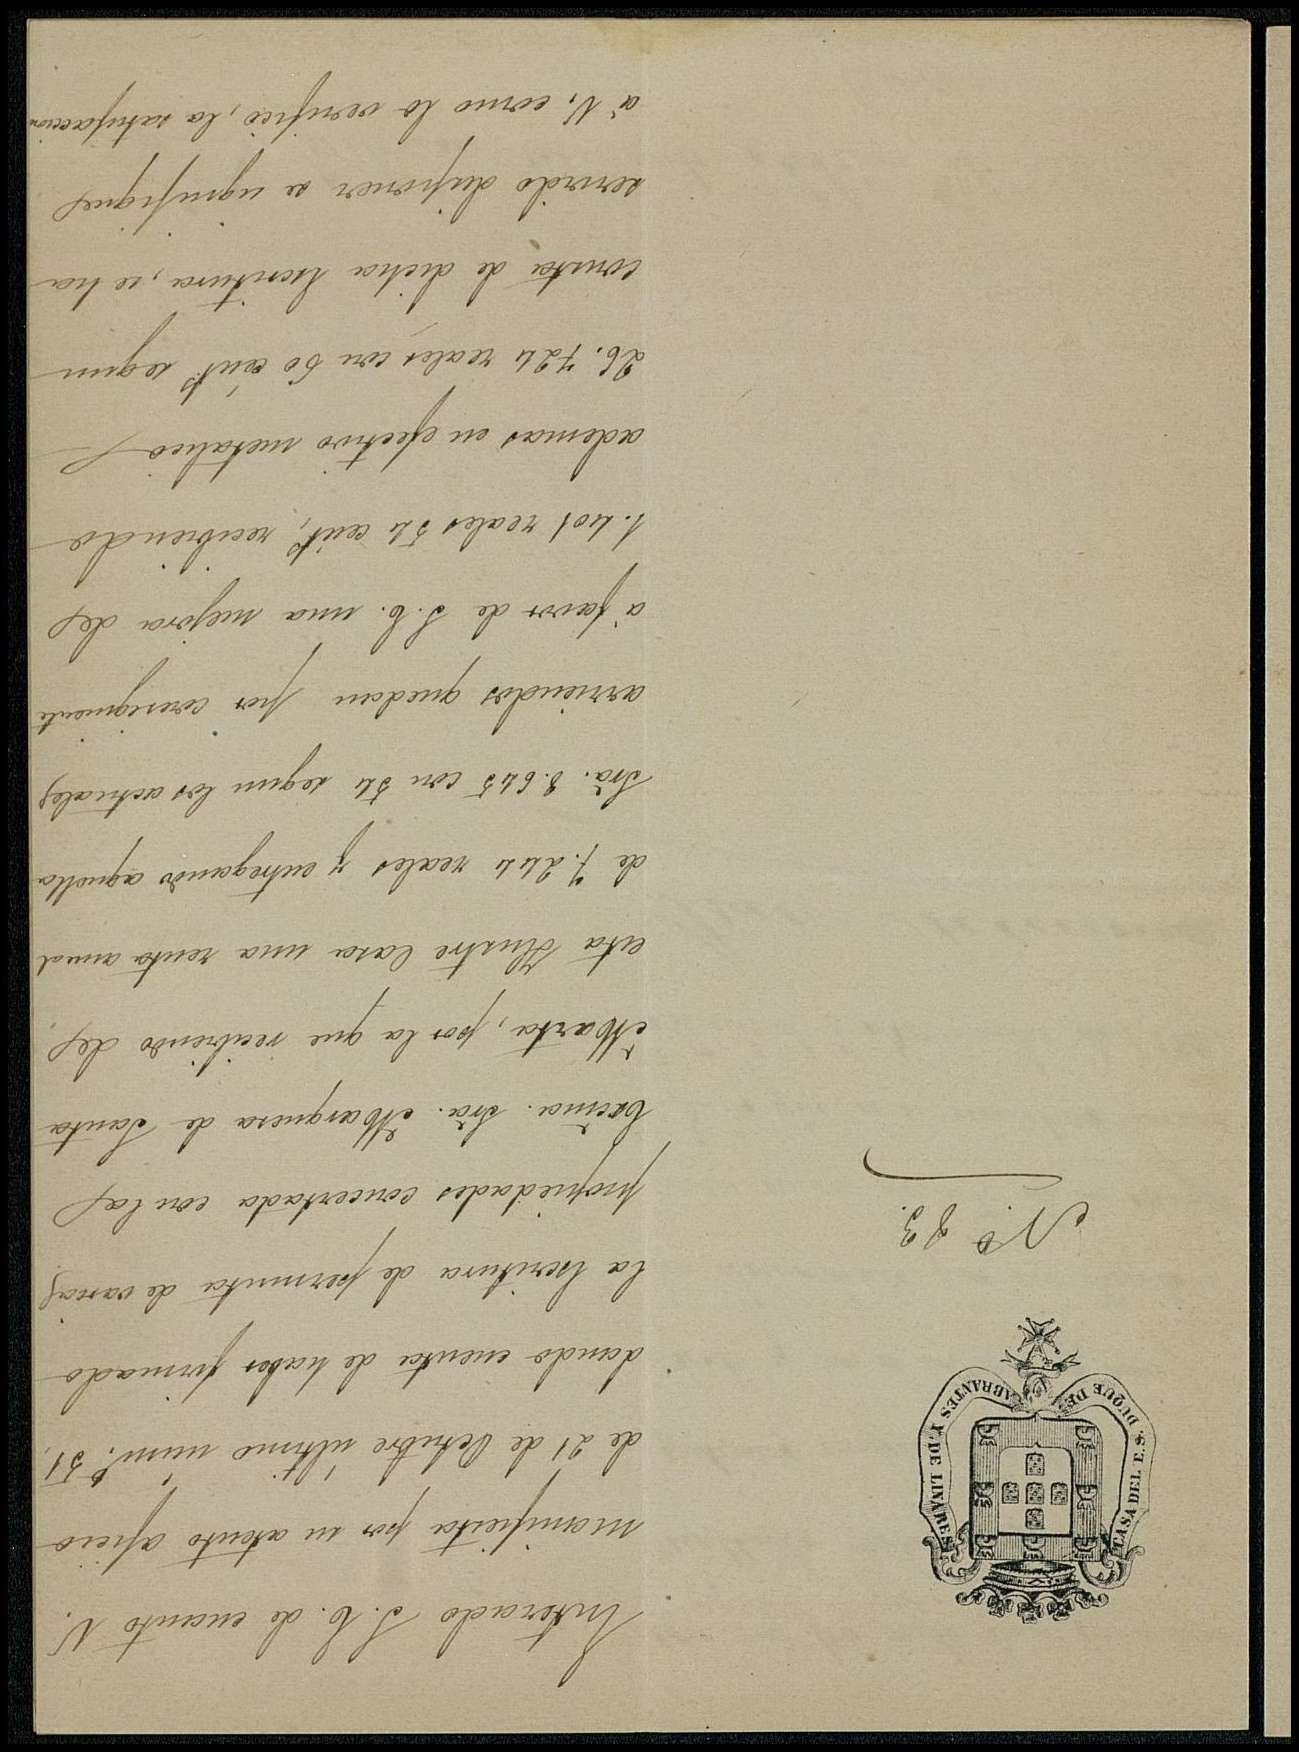 CASA DEL E.S. DUQUE DE ABRANTES Y DE LINARES
N.º 83.
Enterado S. E. de cuanto V.
manifiesta por su atento oficio
de 21 de Octubre último núm.º 51,
dando cuenta de haber firmado
la Escritura de permuta de varias
propiedades concertada con la
Excma. Sra. Marquesa de Santa
Marta, por la que recibiendo de
esta Ilustre Casa una renta anual
de 7.244 reales y entregando aquella
Sra. 8.645 con 54 segun los actuales
arriendos quedan por consiguiente
á favor de S. E. una mejora de
1.401 reales 54 cent.s, recibiendo
ademas en efectivo metalico
26.724 reales con 60 cent.s segun
consta de dicha Escritura, se ha
servido disponer se signifique
á V. como lo verifico, la satisfaccion